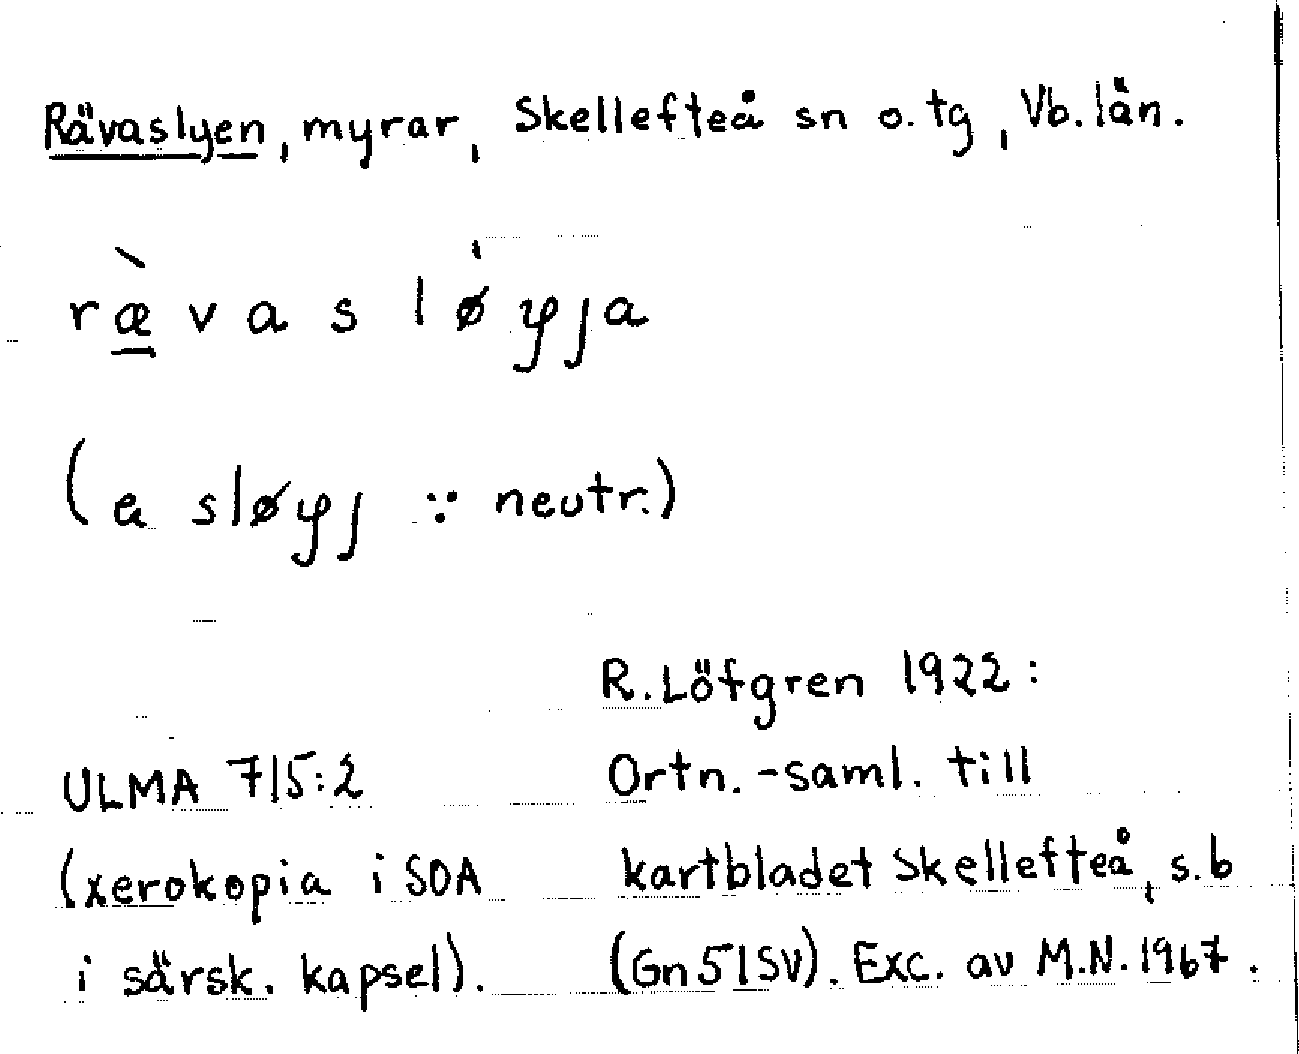 Rävaslyen, myrar, Skellefteå sn o. tg, Vb. län.
ræ̲̀vaslø̍yja
(e sløyj ∵ neutr.)
R. Löfgren 1922:
ULMA 715:2 Ortn.-saml. till
(xerokopia i SOA kartbladet Skellefteå, s. b
i särsk. kapsel). (Gn 51 SV). Exc. av M.N. 1967.